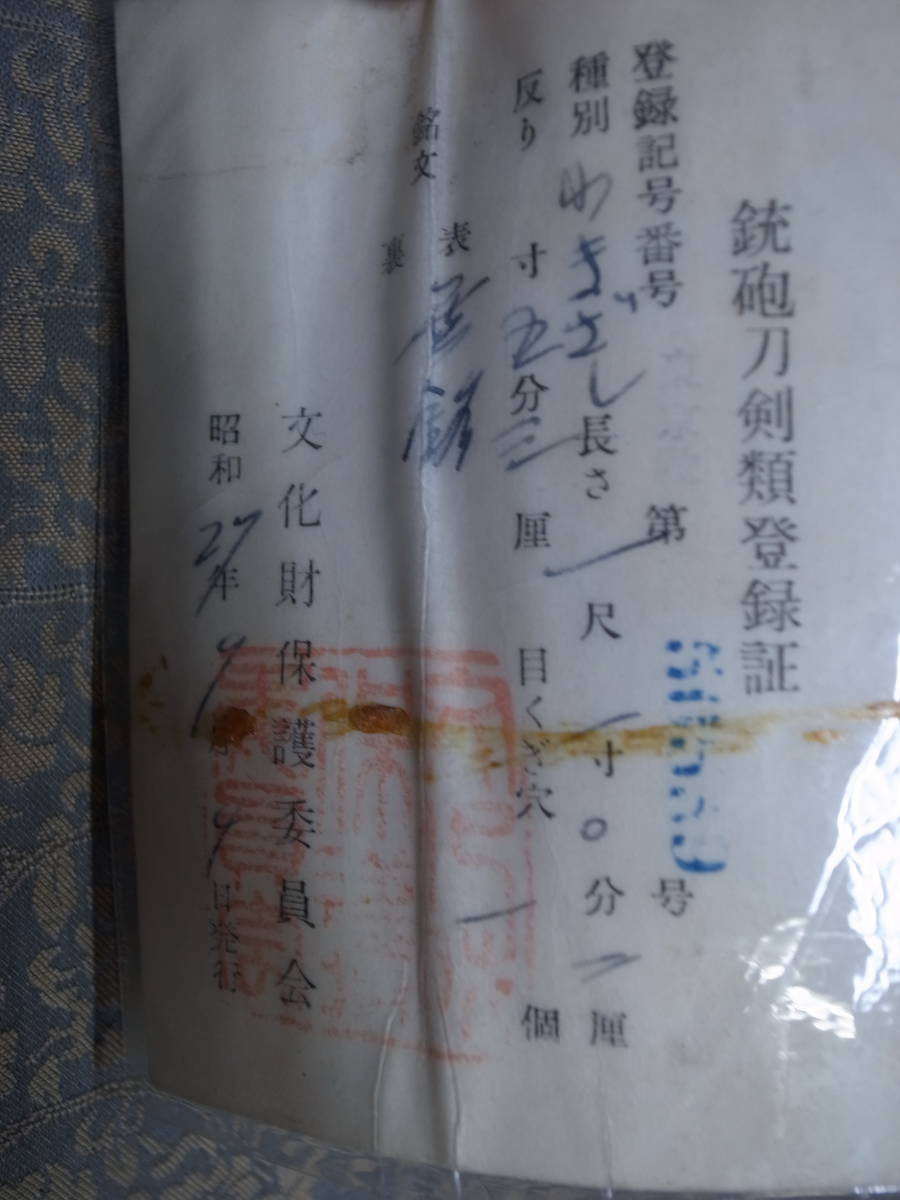 銃砲刀剣類登録証
登録記号番号 第 号
種別 わきざし 長さ 一尺一寸〇分 厘
反り 寸五分三厘 目くぎ穴 一個
銘文 表 無銘
裏
文化財保護委員会
昭和27年9月9日発行